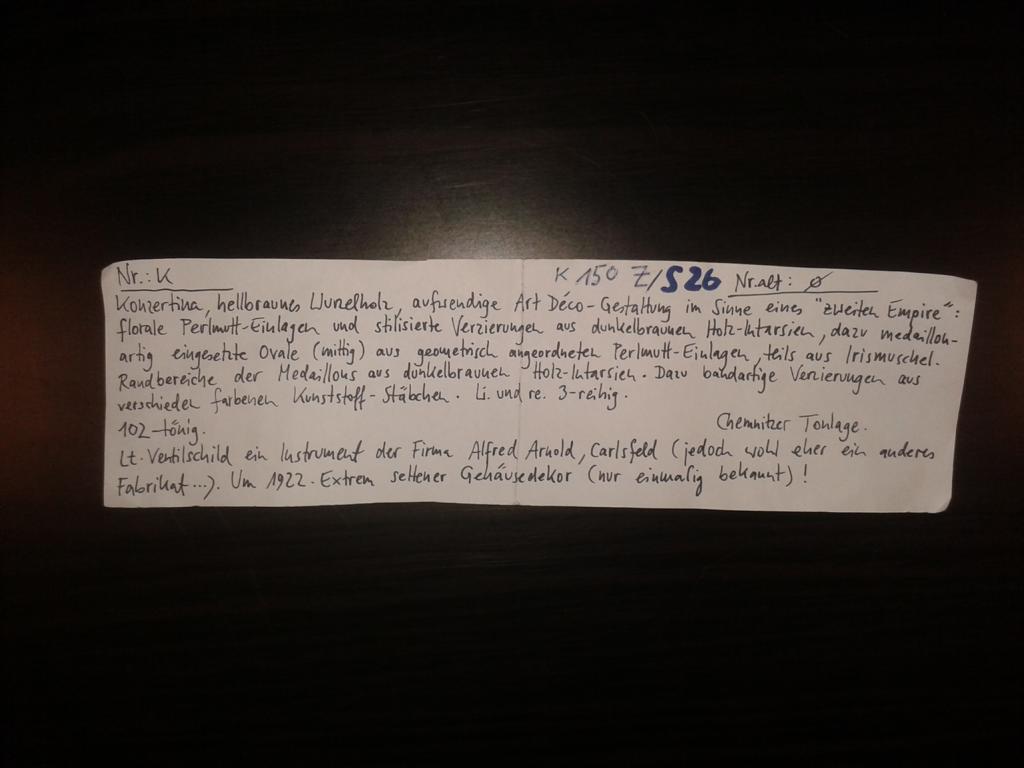 Nr.: K K 150 Z/S26 Nr.alt: ∅
Konzertina, hellbraunes Wurzelholz, aufwendige Art Déco-Gestaltung im Sinne eines "zweiten Empire":
florale Perlmutt-Einlagen und stilisierte Verzierungen aus dunkelbraunen Holz-Intarsien, dazu medaillon-
artig eingesetzte Ovale (mittig) aus geometrisch angeordneten Perlmutt-Einlagen, teils aus Irismuschel.
Randbereiche der Medaillons aus dunkelbraunen Holz-Intarsien. Dazu bandartige Verzierungen aus
verschieden farbenen Kunststoff-Stäbchen. Li. und re. 3-reihig.
102-tönig. Chemnitzer Tonlage.
Lt. Ventilschild ein Instrument der Firma Alfred Arnold, Carlsfeld (jedoch wohl eher ein anderes
Fabrikat...). Um 1922. Extrem seltener Gehäusedekor (nur einmalig bekannt)!